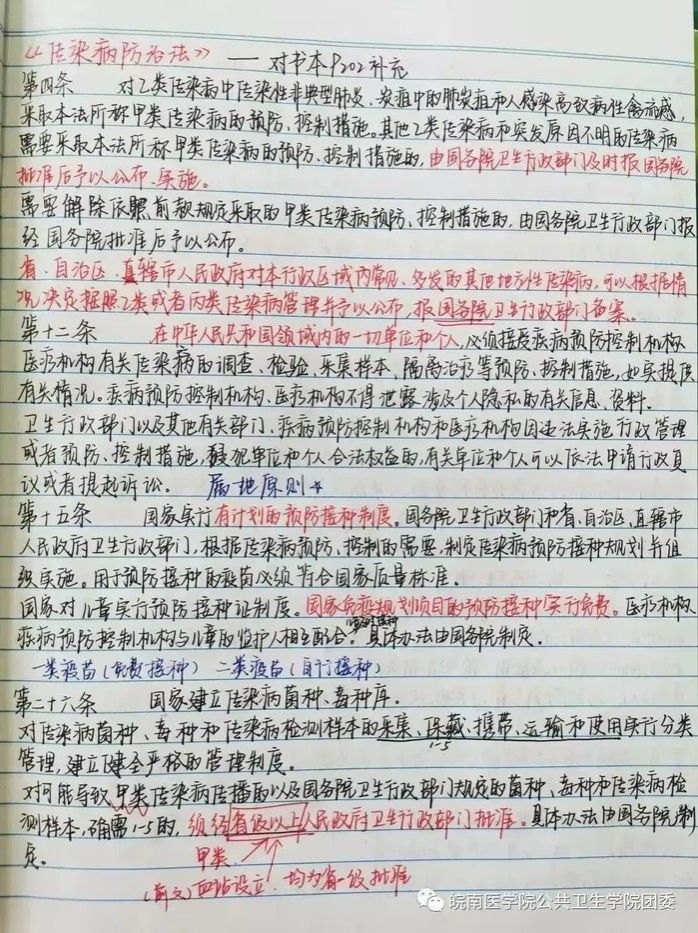 《传染病防治法》——对书本P202补充
第四条 对乙类传染病中传染性非典型肺炎、炭疽中的肺炭疽和人感染高致病性禽流感,
采取本法所称甲类传染病的预防、控制措施。其他乙类传染病和突发原因不明的传染病
需要采取本法所称甲类传染病的预防、控制措施的,由国务院卫生行政部门及时报国务院
批准后予以公布、实施。
需要解除依照前款规定采取的甲类传染病预防、控制措施的,由国务院卫生行政部门报
经国务院批准后予以公布。
省、自治区、直辖市人民政府对本行政区域内常见、多发的其他地方性传染病,可以根据情
况决定按照乙类或者丙类传染病管理并予以公布,报国务院卫生行政部门备案。
第十二条 在中华人民共和国领域内的一切单位和个人,必须接受疾病预防控制机构、
医疗机构有关传染病的调查、检验、采集样本、隔离治疗等预防、控制措施,如实提供
有关情况。疾病预防控制机构、医疗机构不得泄露涉及个人隐私的有关信息、资料。
卫生行政部门以及其他有关部门、疾病预防控制机构和医疗机构因违法实施行政管理
或者预防、控制措施,侵犯单位和个人合法权益的,有关单位和个人可以依法申请行政复
议或者提起诉讼。 属地原则☆
第十五条 国家实行有计划的预防接种制度。国务院卫生行政部门和省、自治区、直辖市
人民政府卫生行政部门,根据传染病预防、控制的需要,制定传染病预防接种规划并组
织实施。用于预防接种的疫苗必须符合国家质量标准。
国家对儿童实行预防接种证制度。国家免疫规划项目的预防接种实行免费。医疗机构、
疾病预防控制机构与儿童的监护人相互配合。具体办法由国务院制定。
一类疫苗(免费接种) 二类疫苗(自行接种)
第二十六条 国家建立传染病菌种、毒种库。
对传染病菌种、毒种和传染病检测样本的采集、保藏、携带、运输和使用实行分类
1-5
管理,建立健全严格的管理制度。
对可能导致甲类传染病传播的以及国务院卫生行政部门规定的菌种、毒种和传染病检
测样本,确需1-5的,须经省级以上人民政府卫生行政部门批准。具体办法由国务院制
定。
甲类
血站设立 均为省一级批准
皖南医学院公共卫生学院团委